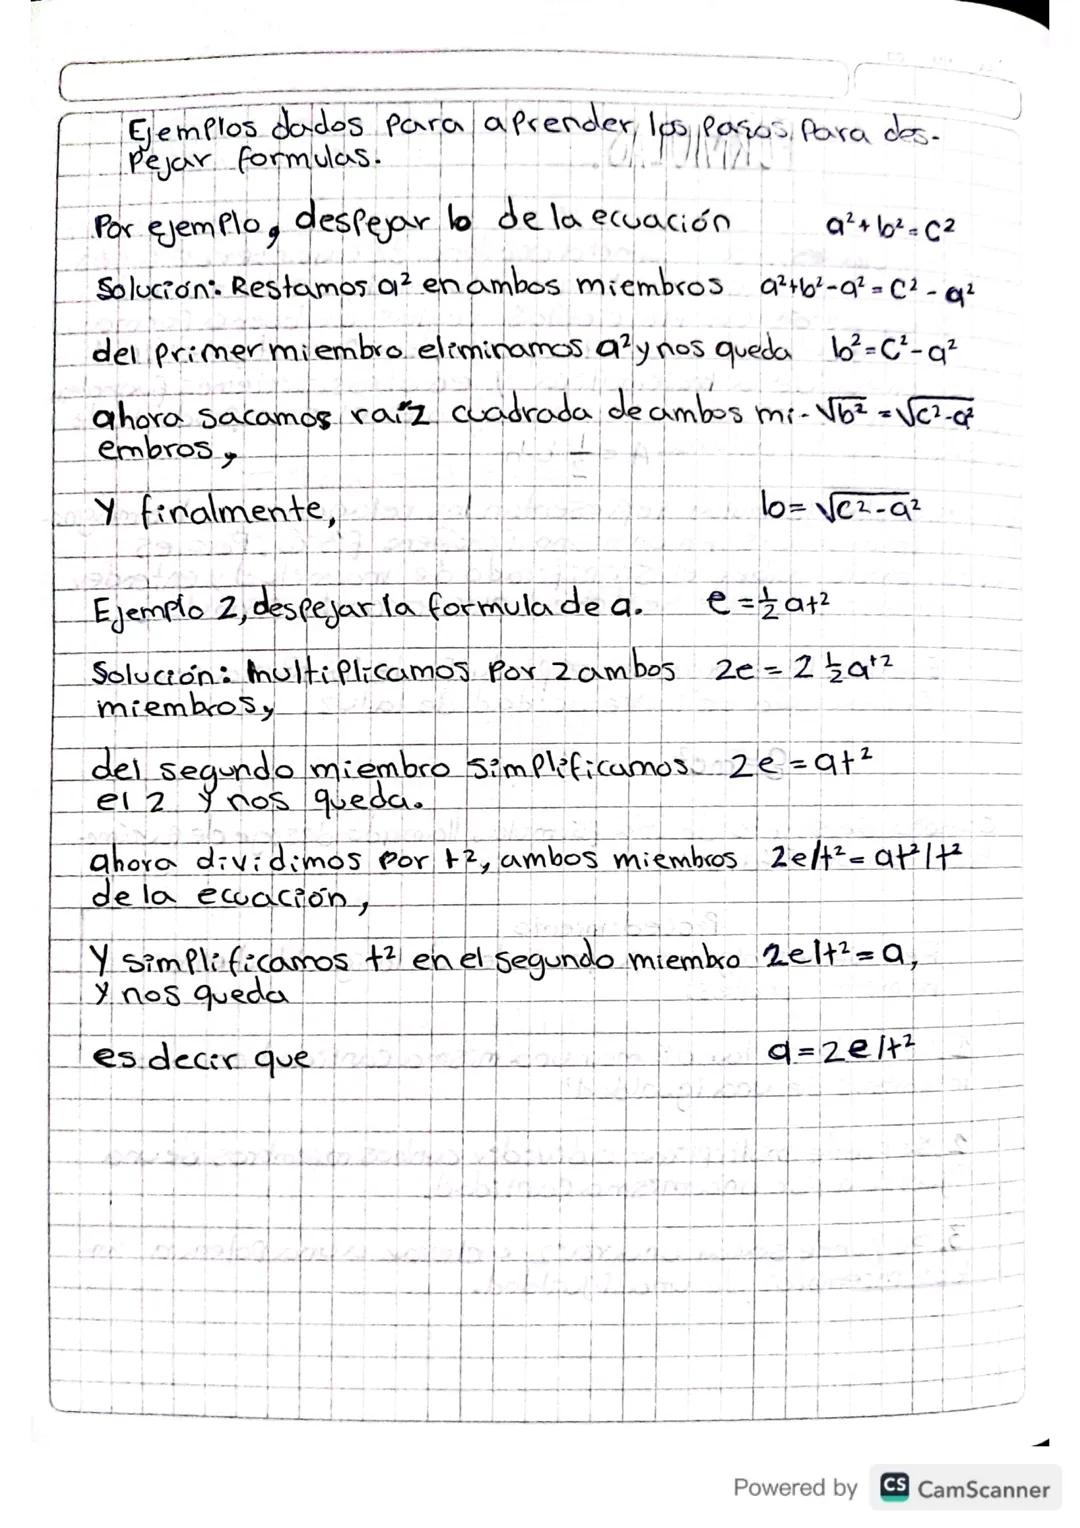 Ejemplos dados para aprender los pasos para des-
pejar formulas.
Por ejemplo, despejar b de la ecuación a²+b²=c²
Solución: Restamos a² en ambos miembros a²+b²-a²=c²-a²
del primer miembro eliminamos a² y nos queda b²=c²-a²
ahora sacamos raíz cuadrada de ambos mi- √b² =√c²-a²
embros,
Y finalmente, b= √c²-a²
Ejemplo 2, despejar la formula de a. e=½ at²
Solución: Multiplicamos por 2 ambos 2e = 2 ½at²
miembros,
del segundo miembro simplificamos 2e=at²
el 2 y nos queda.
ahora dividimos por t², ambos miembros 2e/t²= at²/t²
de la ecuación,
Y simplificamos t² en el segundo miembro 2e/t²= a,
y nos queda
es decir que a=2e/t²
Powered by CS CamScanner